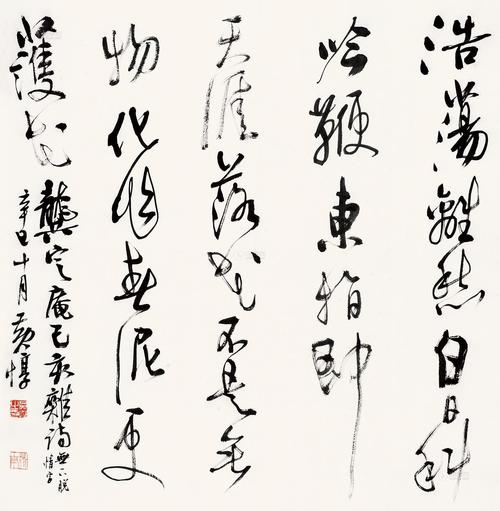 浩蕩離愁白日斜
吟鞭東指即
天涯落花不是無
物化作春泥更
護花 龔定庵己亥雜詩 無下脫情字
辛巳十月黃惇